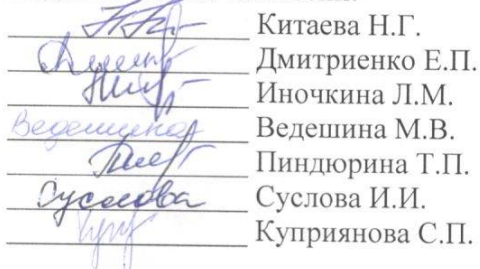 Китаева Н.Г.
Дмитриенко Е.П.
Иночкина Л.М.
Ведешина Ведешина М.В.
Пиндюрина Т.П.
Суслова Суслова И.И.
Куприянова С.П.